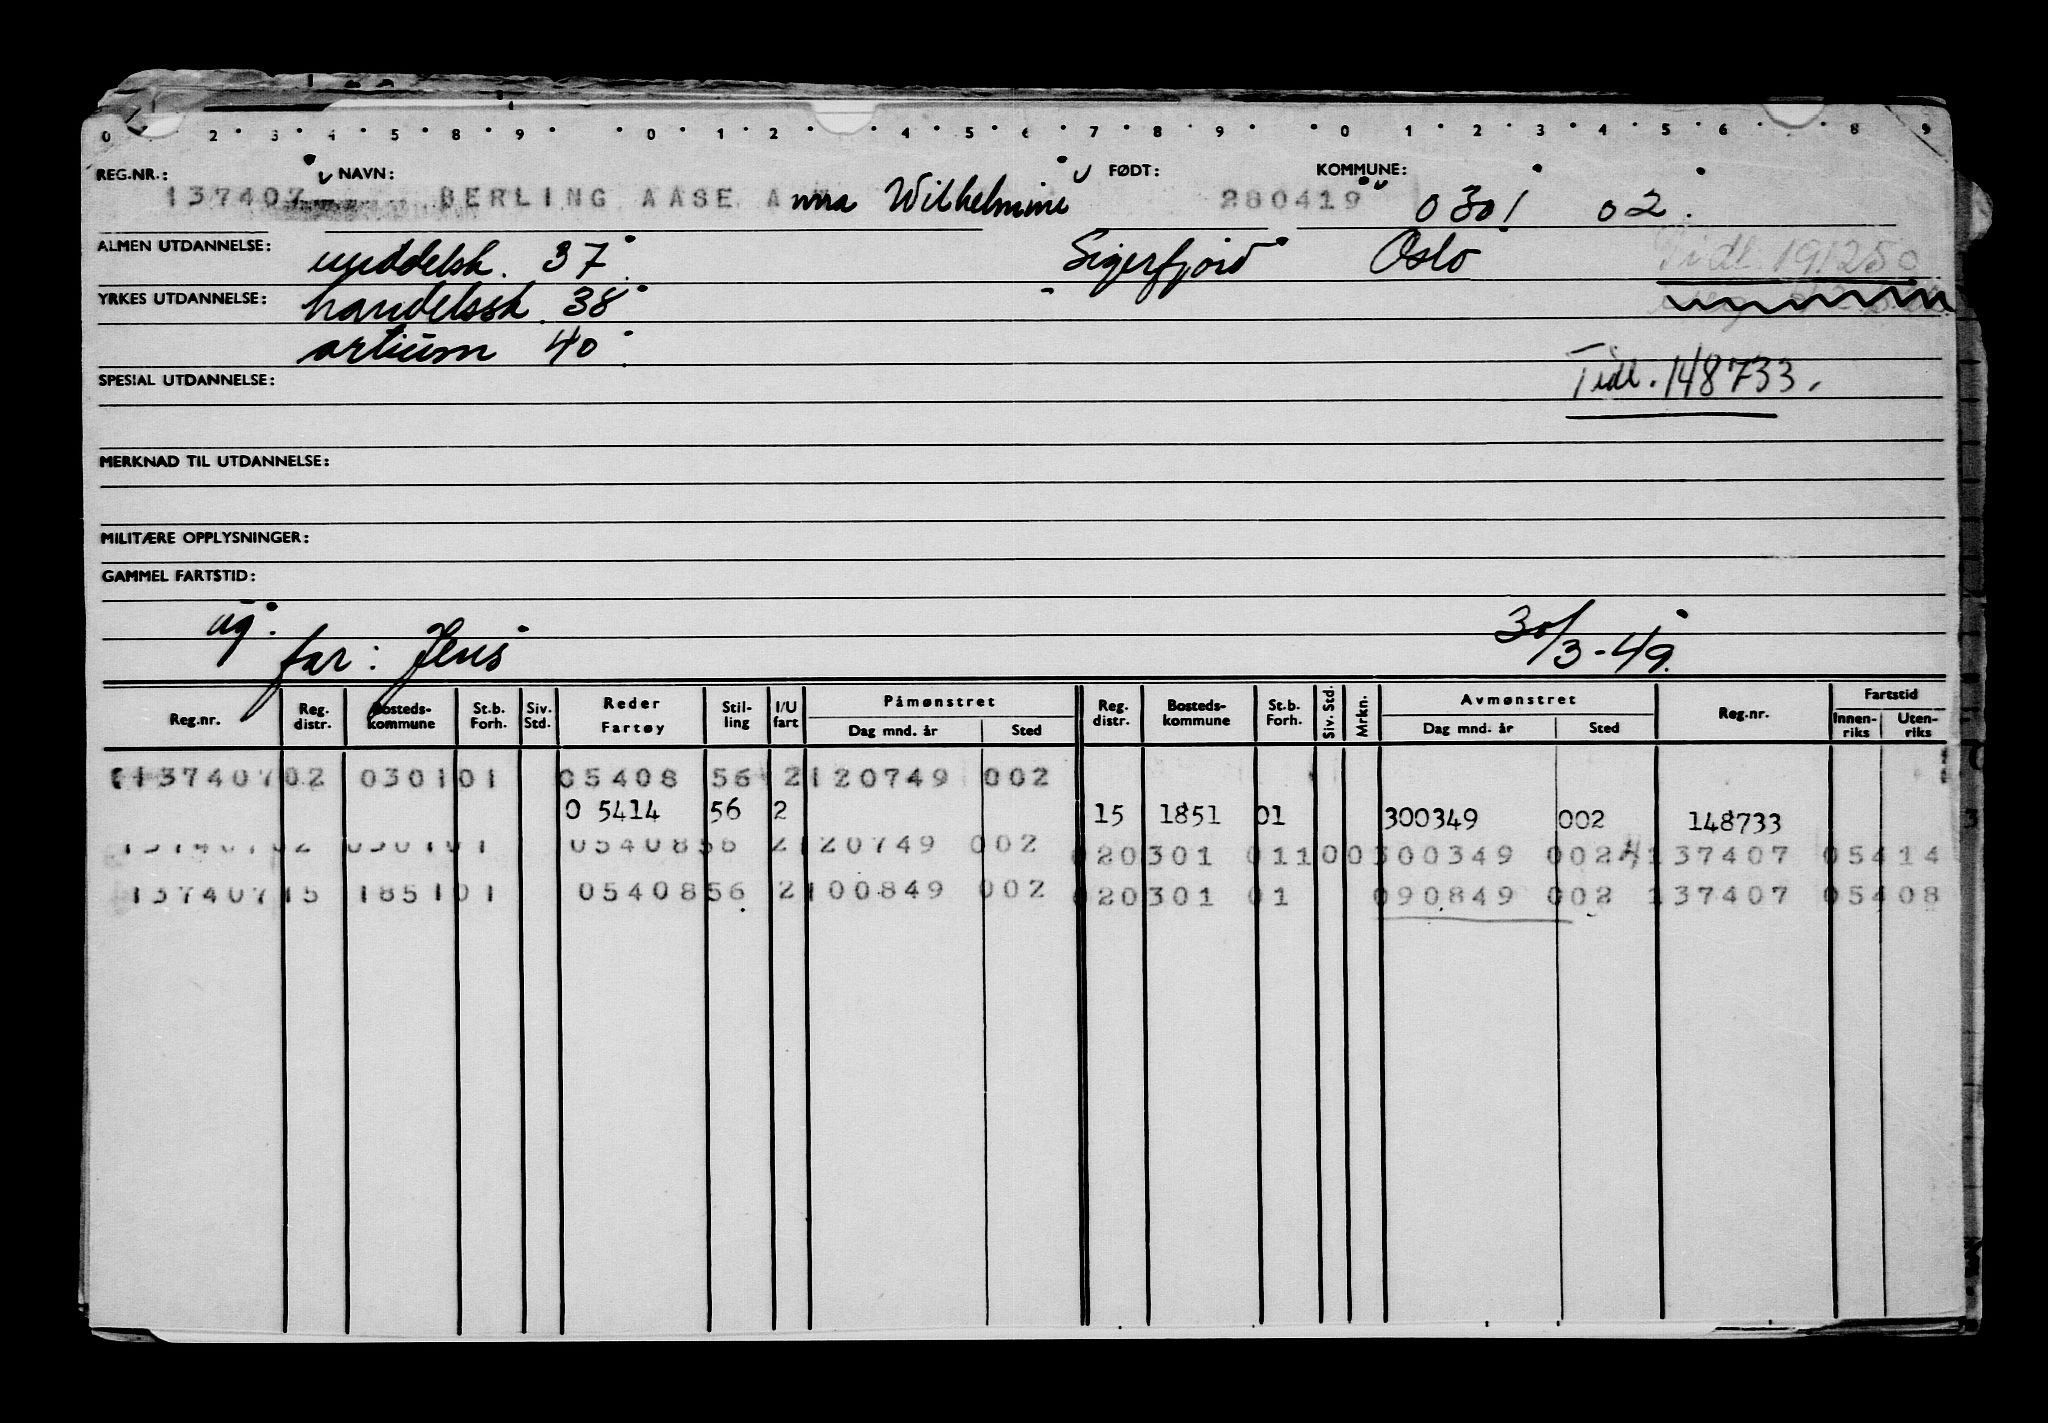 0 2 3 4 5 8 9 0 1 2 4 5 6 7 8 9 0 1 2 3 4 5 6 8 9
REG.NR.: NAVN: FØDT: KOMMUNE:
137407 BERLING AASE Anna Wilhelmine 280419 0301 02.
ALMEN UTDANNELSE: middelsk. 37. Sigerfjord Oslo Tidl. 191250
YRKES UTDANNELSE: handelssk. 38
artium 40 Tidl. 148733.
SPESIAL UTDANNELSE:
MERKNAD TIL UTDANNELSE:
MILITÆRE OPPLYSNINGER:
GAMMEL FARTSTID:
ug.
far: Jens 30/3-49.
Reg.nr. Reg. distr. Bosteds-kommune St.b. Forh. Siv. Std. Reder Fartøy Stil-ling I/U fart Påmønstret Dag mnd. år Sted Reg. distr. Bosteds-kommune St.b. Forh. Siv. Std. Mrkn. Avmønstret Dag mnd. år Sted Reg.nr. Fartstid Innen-riks Uten-riks
137407 02 0301 01 05408 56 2 120749 002
0 5414 56 2 15 1851 01 300349 002 148733
137407 02 0301 01 05408 56 2 120749 002 02 0301 01 1 00 300349 002 4 137407 05414
137407 15 1851 01 05408 56 2 100849 002 02 0301 01 090849 002 137407 05408